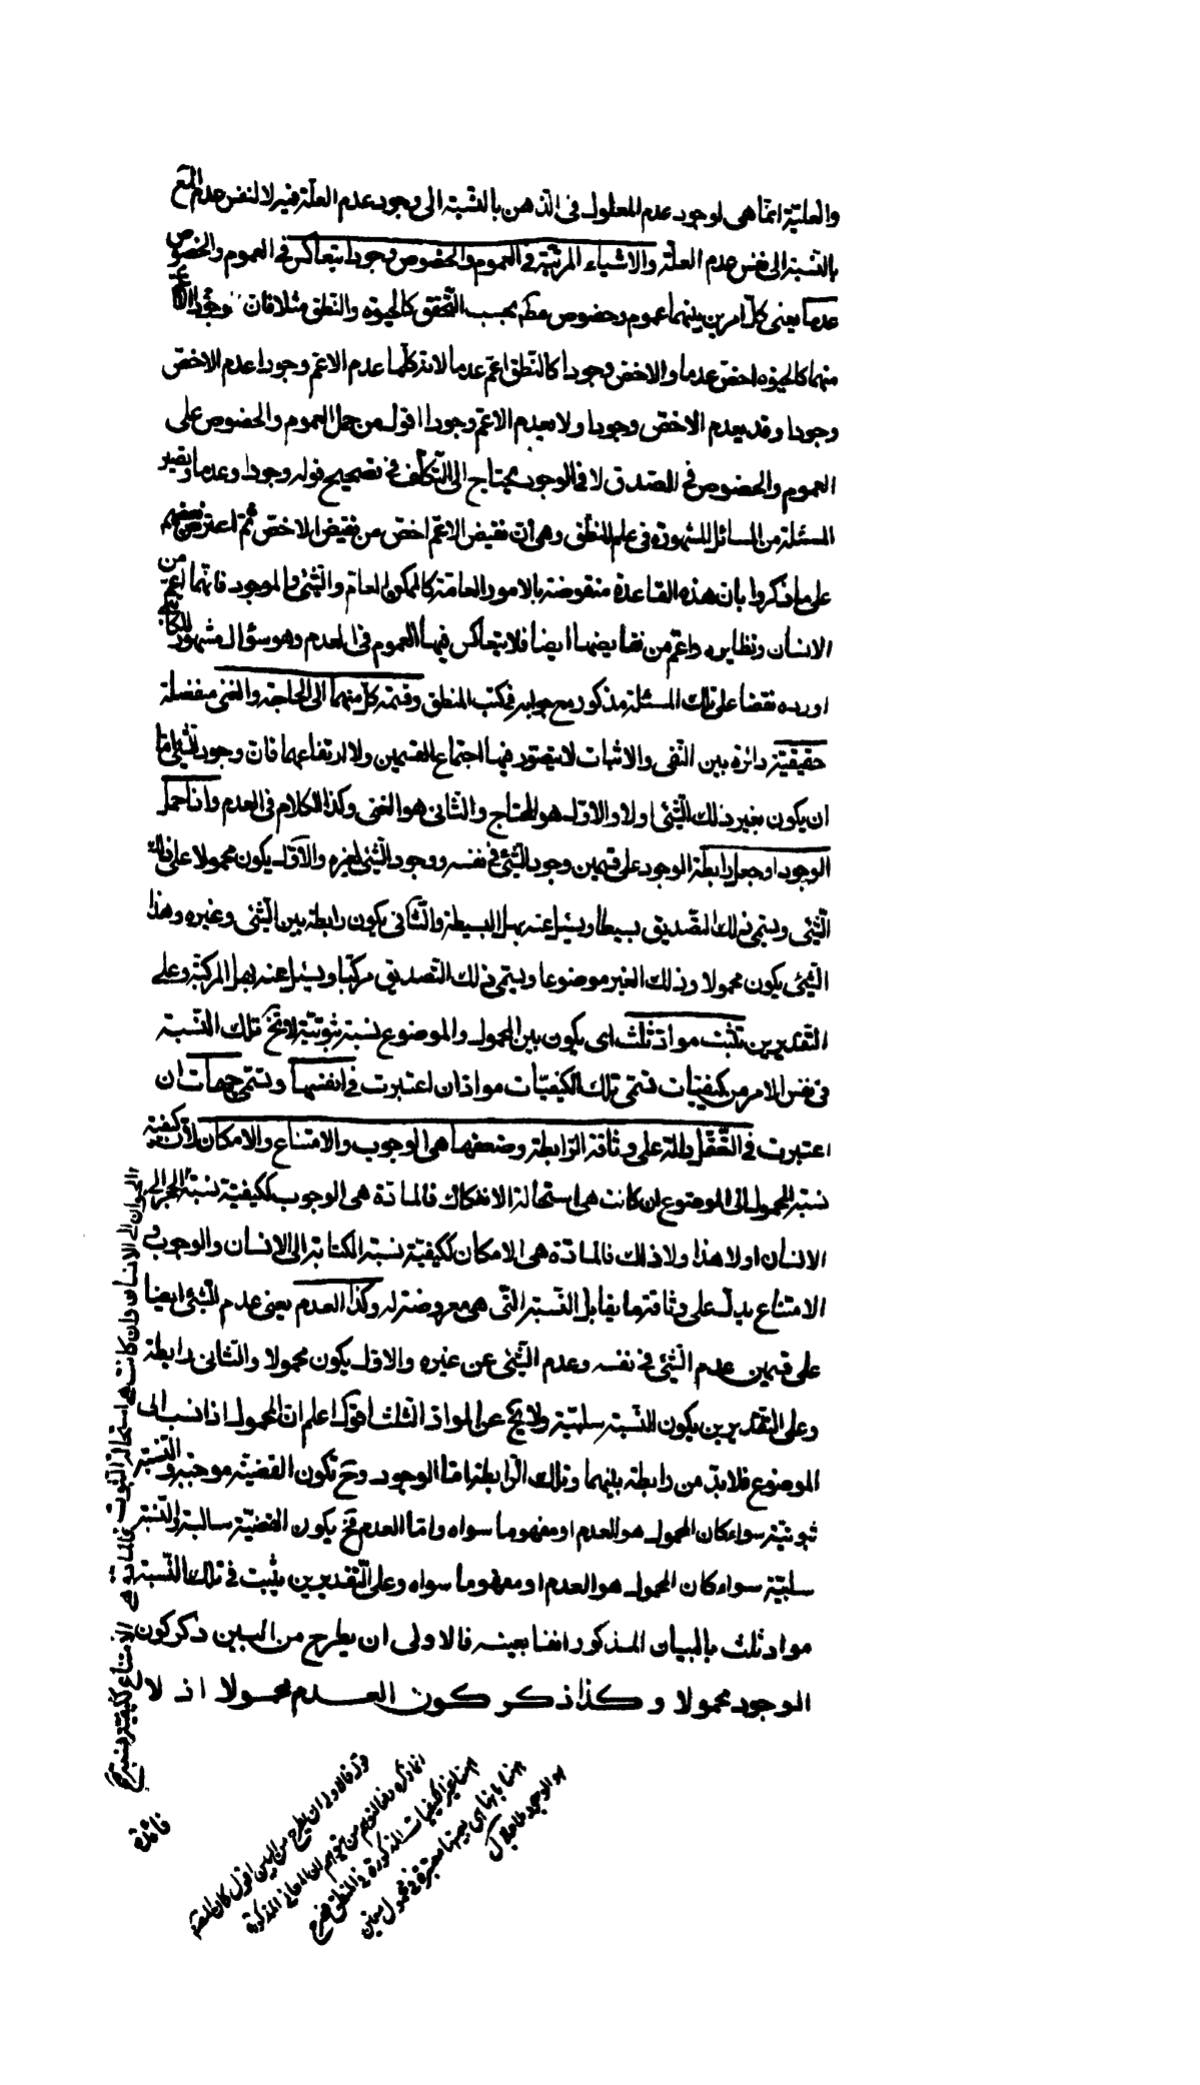 والعليّة انمّا هى لوجود عدم المعلول فى الذهن بالنسبة الى وجود عدم العلّة فيه لا لنفس عدم المع
بالنسبة الى نفس عدم العلّة والاشياء المرتّبة فى العموم والخصوص وجودا يتعاكس فى العموم والخصوص
عدما يعنى كلّ امرين بينهما عموم وخصوص مط بحسب التّحقق كالحيوة والنطق مثلا فان
منهما كالحيوة اخصّ عدما والاخصّ وجودا كالنّطق اعمّ عدما لانه كلّما عدم الاعمّ وجودا عدم الاخصّ
وجودا وقد يعدم الاخصّ وجودا ولا يعدم الاعمّ وجودا اقول من حمل العموم والخصوص على
العموم والخصوص فى الصدق لا فى الوجود يحتاج الى التكلّف فى تصحيح قوله وجودا وعدما ويصير
المسئلة من المسائل المشهورة فى علم المنطق وهى ان نقيض الاعمّ اخصّ من نقيض الاخصّ ثمّ اعترض بعضهم
على ما ذكروا بان هذه القاعدة منقوضة بالامور العامّة كالممكن العامّ والشّئ والموجود فانّها اعمّ من
الانسان ونظايره واعمّ من نقايضها ايضا فلا يتعاكس فيها العموم فى العدم وهو سؤال مشهور
اورده نقضا على تلك المسئلة مذكور مع جوابه فى كتب المنطق وقسمة كلّ منهما الى الحاجة والغنى منفصلة
حقيقيّة دائرة بين النّفى والاثبات لا يتصوّر فيها اجتماع القسمين ولا ارتفاعهما فان وجود الشّئ امّا
ان يكون بغير ذلك الشّئ اولا والاوّل هو المحتاج والثّانى هو الغنى وكذا الكلام فى العدم واذا حمل
الوجود او جعل رابطة الوجود على قسمين وجود الشّئ فى نفسه ووجود الشّئ لغيره والاوّل يكون محمولا على ذلك
الشّئ ويسمّى ذلك التصديق بسيطا ويسئل عنه بهل البسيطة والثّانى يكون رابطة بين الشّئ وغيره وهذا
الشّئ يكون محمولا وذلك الغير موضوعا ويسمّى ذلك التّصديق مركّبا ويسئل عنه بهل المركّبة وعلى
التقديرين تثبت موادّ ثلث اى يكون بين المحمول والموضوع نسبة ثبوتيّة لا تخ تلك النّسبة
فى نفس الامر من كيفيّات تسمّى تلك الكيفيّات موادّ ان اعتبرت فى انفسها وتسمّى جهات ان
اعتبرت فى التّعقّل دالة على وثاقة الرّابطة وضعفها هى الوجوب والامتناع والامكان لان كيفيّة
نسبة المحمول الى الموضوع ان كانت هى استحالة الانفكاك فالمادّة هى الوجوب ككيفيّة نسبة
الحيوان الى الانسان وان كانت هى استحالة الثبوت فالمادّة هى الامتناع ككيفيّة نسبة
الحجر الى
الانسان او لا هذا ولا ذلك فالمادّة هى الامكان ككيفيّة نسبة الكتابة الى الانسان والوجوب و
الامتناع يدلّ على وثاقة ما يقابل النّسبة الّتى هى معروضة له وكذا العدم يعنى عدم الشّئ ايضا
على قسمين عدم الشّئ فى نفسه وعدم الشّئ عن غيره والاوّل يكون محمولا والثّانى رابطة
وعلى التقديرين يكون النّسبة سلبيّة ولا يخ عن الموادّ الثلث اقول اعلم ان المحمول اذا نسب الى
الموضوع فلا بدّ من رابطة بينهما وتلك الرّابطة امّا الوجود وح تكون القضيّة موجبة والنّسبة
ثبوتيّة سواء كان المحمول هو العدم او مفهوما سواه وامّا العدم فح يكون القضيّة سالبة والنّسبة
سلبيّة سواء كان المحمول هو العدم او مفهوما سواه وعلى التّقديرين يثبت فى تلك النّسبة
مواد ثلث بالبيان المذكور انفا بعينه فالاولى ان يطرح من البين ذكر كون
الوجود محمولا وكذا ذكر كون العدم محمولا اذ لا
فائدة
قوله فالاولى ان يطرح من البين اقول كان المصنف
انما ذكره دفعا لتوهم من يتوهم ان المعانى المذكورة
ههنا غير الكيفيات المذكورة فى المنطق